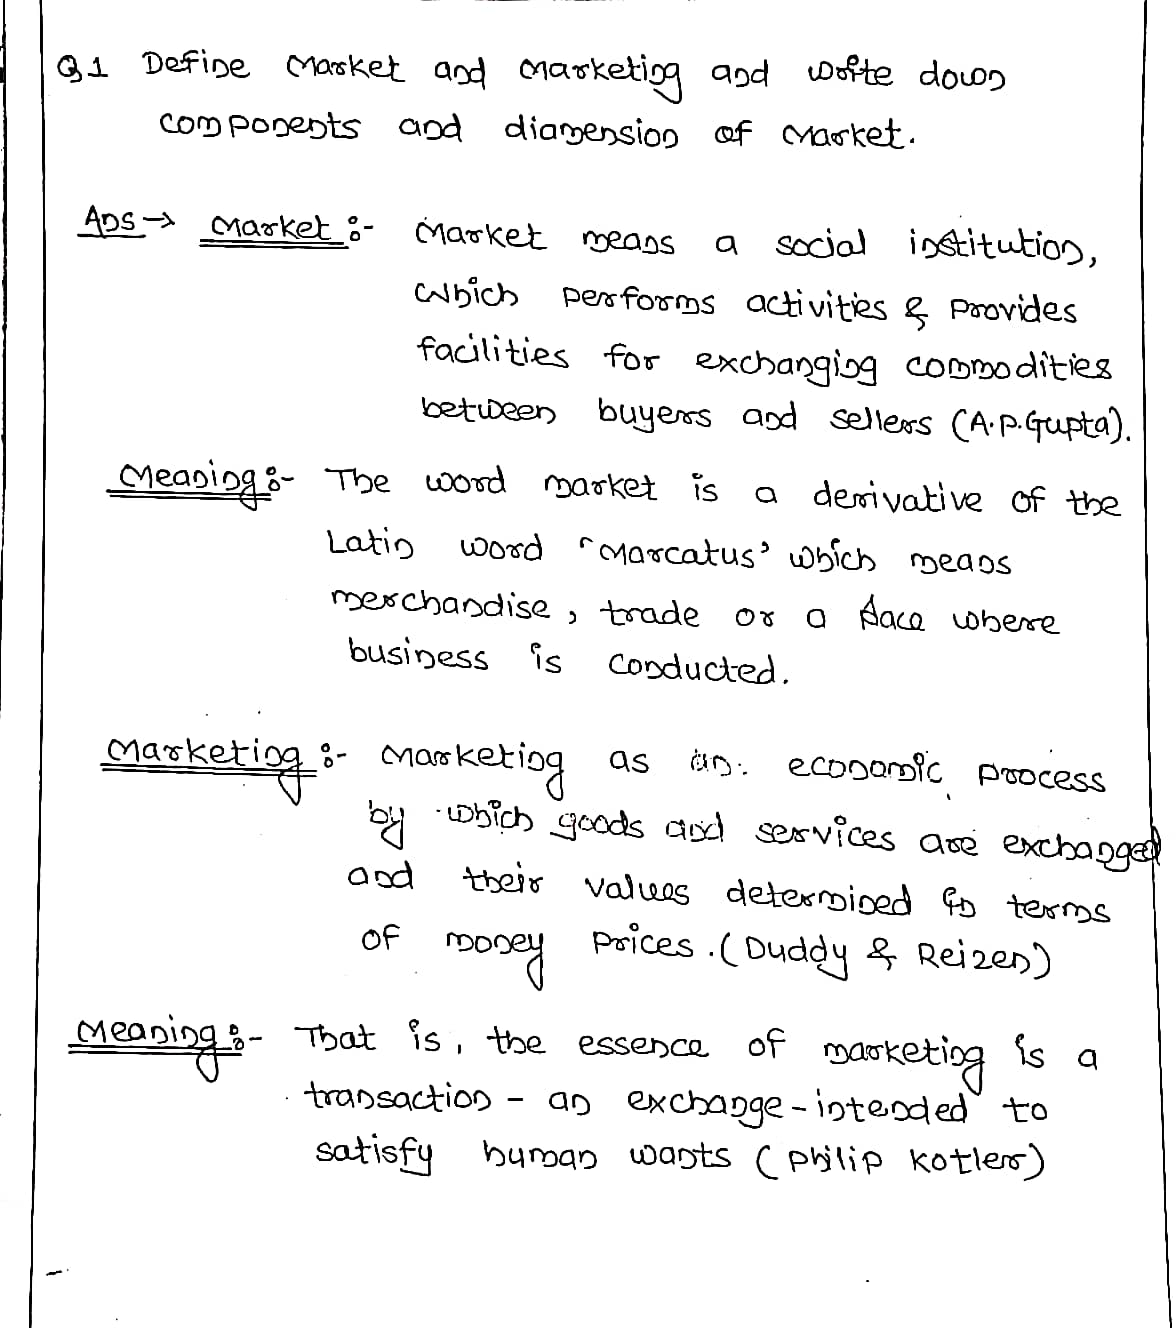 Q1 Define Market and Marketing and write down
components and diamension of Market.
Ans → Market :- Market means a social institution,
Which performs activities & provides
facilities for exchanging commodities
between buyers and sellers (A.P. Gupta).
Meaning :- The word market is a derivative of the
Latin word 'Marcatus' which means
merchandise, trade or a place where
business is conducted.
Marketing :- Marketing as an economic process
by which goods and services are exchanged
and their values determined in terms
of money prices. (Duddy & Reizen)
Meaning :- That is, the essence of marketing is a
transaction - an exchange - intended to
satisfy human wants (Philip Kotler)